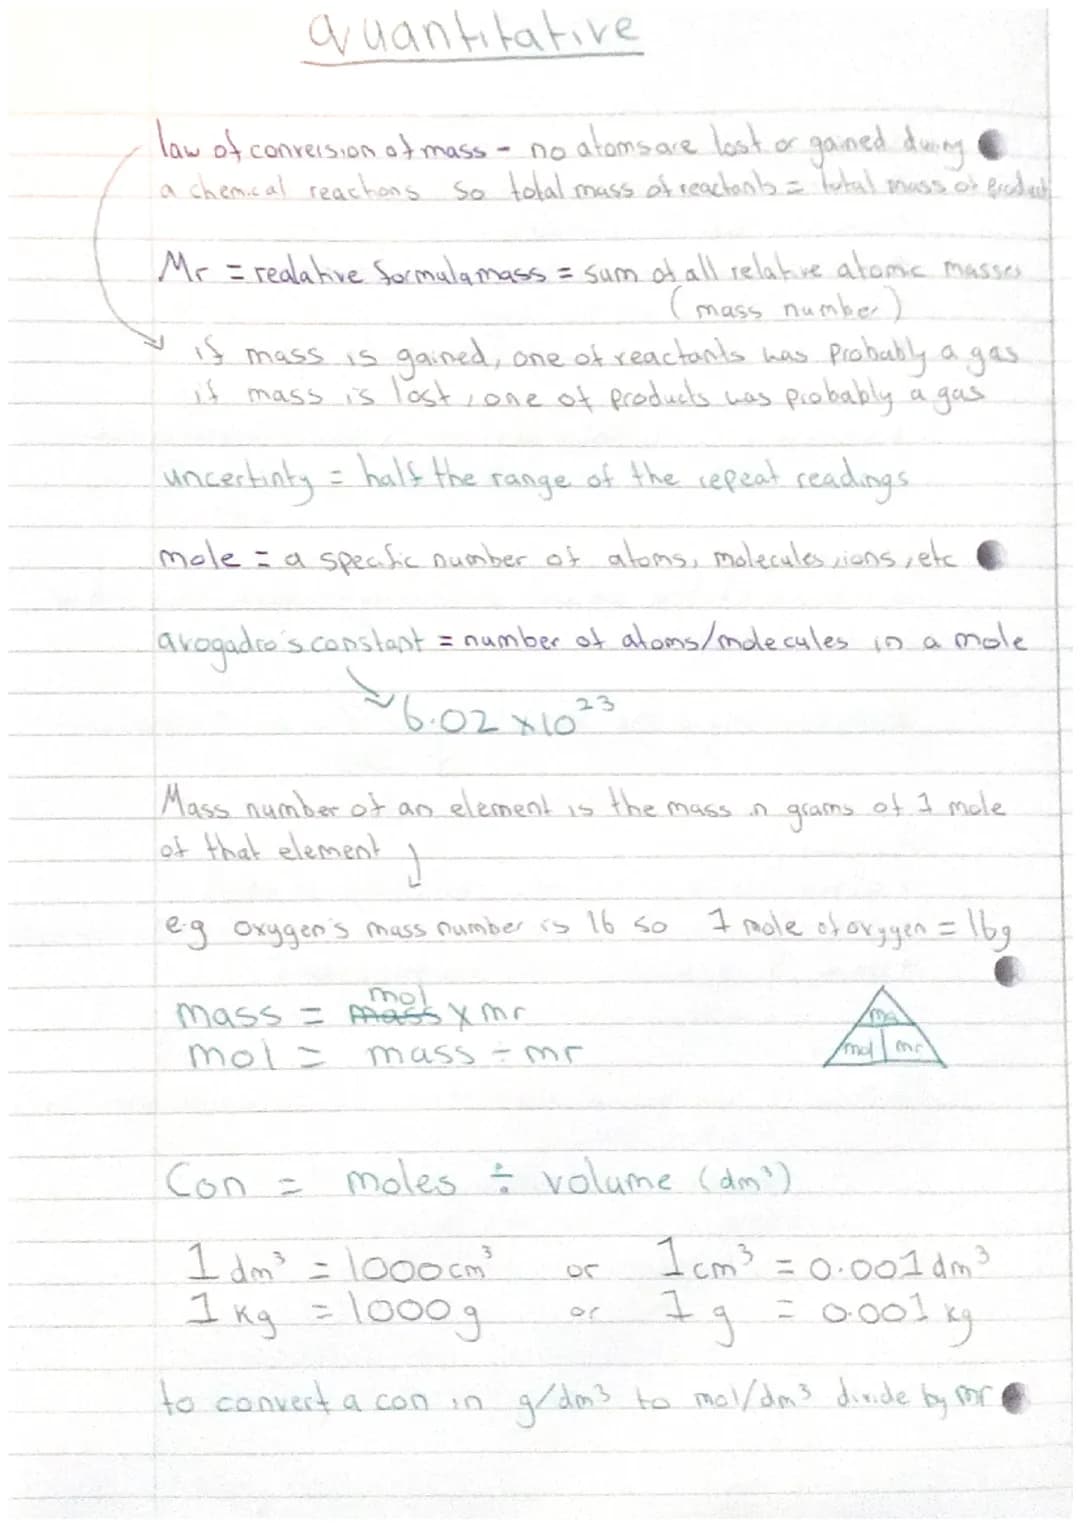 quantitative
law of conversion of mass - no atoms are lost or gained during
a chemical reactions so total mass of reactants = total mass of product
Mr = realative formula mass = sum of all relative atomic masses
(mass number)
if mass is gained, one of reactants was probably a gas
if mass is lost, one of products was probably a gas
uncertinty = half the range of the repeat readings
mole = a specific number of atoms, molecules, ions, etc
avogadro's constant = number of atoms/molecules in a mole
6.02 x10²³
Mass number of an element is the mass in grams of 1 mole
of that element
e.g oxygen's mass number is 16 so 1 mole of oxygen = 16g
mol
mass = mass x mr
mol = mass ÷ mr
ma
mol mr
Con = moles ÷ volume (dm³)
1 dm³ = 1000cm³ or 1cm³ = 0.001dm³
1 kg = 1000g or 1g = 0.001 kg
to convert a con in g/dm³ to mol/dm³ divide by mr